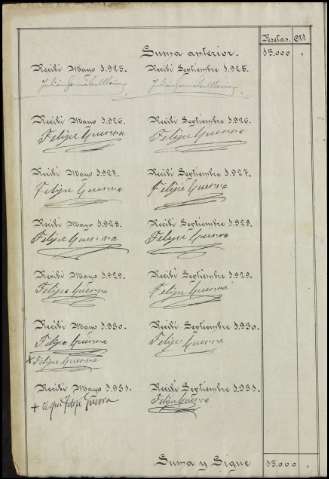 Pesetas. Cts
Suma anterior. 35.000 .
Recibí Mayo 1.925. Recibí Septiembre 1.925.
Recibí Mayo 1.926. Recibí Septiembre 1.926.
Felipe Guerova Felipe Guerova
Recibí Mayo 1.927. Recibí Septiembre 1.927.
Felipe Guerova Felipe Guerova
Recibí Mayo 1.928. Recibí Septiembre 1.928.
Felipe Guerova Felipe Guerova
Recibí Mayo 1.929. Recibí Septiembre 1.929.
Felipe Guerova Felipe Guerova
Recibí Mayo 1.930. Recibí Septiembre 1.930.
Felipe Guerova Felipe Guerova
Felipe Guerova
Recibí Mayo 1.931. Recibí Septiembre 1.931.
Felipe Guerova Felipe Guerova
Suma y Sigue 35.000 .